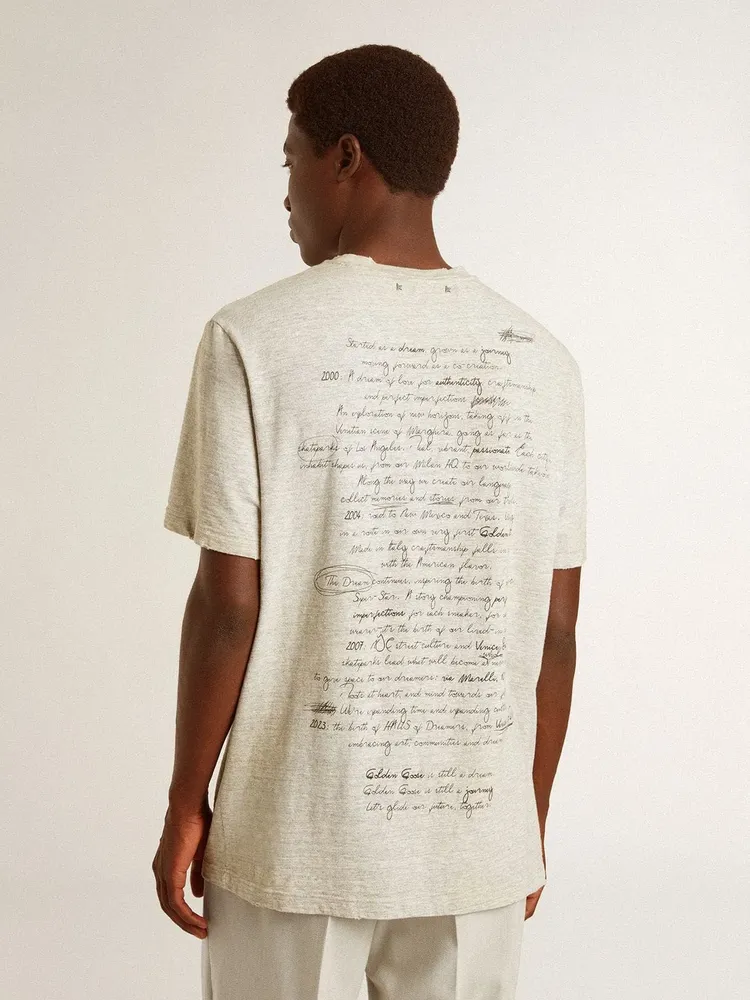 Started as a dream, grown as a journey
moving forward as a co-creation.
2000: A dream of love for authenticity craftsmanship
and perfect imperfections
An exploration of new horizons, taking off in the
Venetian scene of Marghera, going as far as the
skateparks of Los Angeles. Real, vibrant, passionate. Each city
inhabit shapes us, from our Milan HQ to our worldwide
Along the way we create our language
collect memories and stories from our
2004: road to New Mexico and Texas.
in a route in our own very first Golden
Made in Italy craftsmanship falls in
with the American flavor.
The Dream continues, inspiring the birth of
Super-Star. A story championing
imperfections for each sneaker, for
wearer-it's the birth of our lived-in
2007: street culture and Venice
skateparks lead what will become
to give space to our dreamers: via
Roots at heart, and mind towards our
We're expanding time and expanding
2023: the birth of HAUS of Dreamers, from
embracing art, communities and
Golden Goose is still a dream
Golden Goose is still a journey
Let's glide our future, together